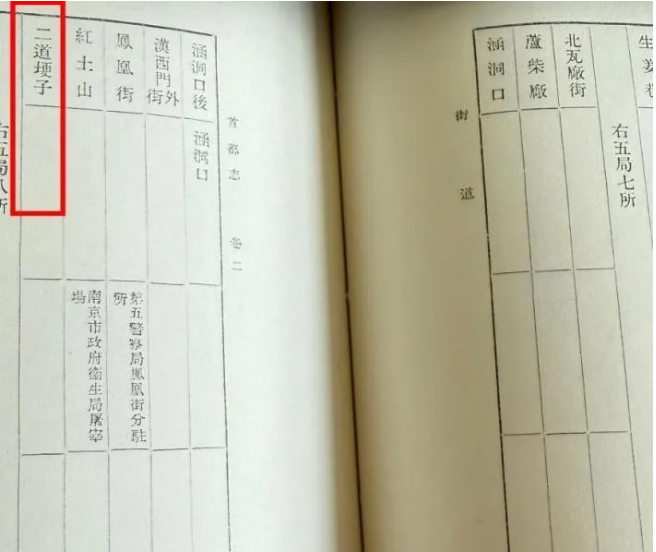 生姜巷
右五局七所
北瓦廠街
蘆柴廠
涵洞口
街道
首都志 卷二
涵洞口後 涵洞口
漢西門外街
鳳凰街 第五警察局鳳凰街分駐所
紅土山 南京市政府衛生局屠宰場
二道埂子
右五局八所